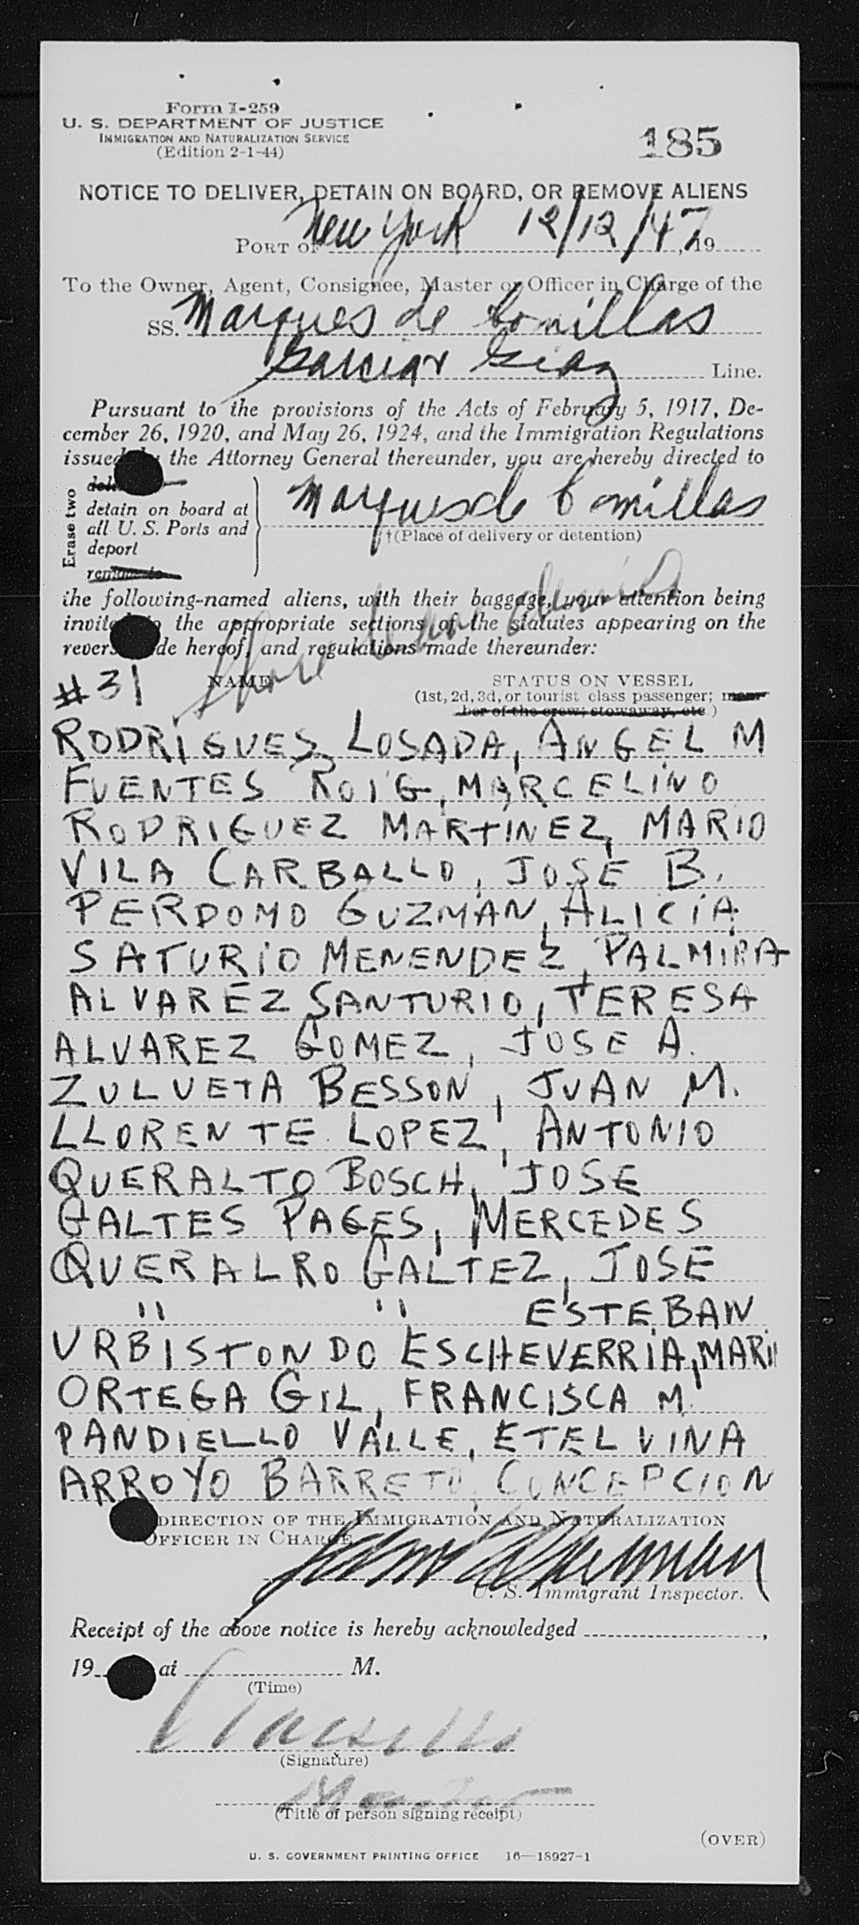 Form I-259
U. S. DEPARTMENT OF JUSTICE
IMMIGRATION AND NATURALIZATION SERVICE
(Edition 2-1-44)
185
NOTICE TO DELIVER, DETAIN ON BOARD, OR REMOVE ALIENS
PORT OF New York 12/12/47, 19
To the Owner, Agent, Consignee, Master or Officer in Charge of the
SS. Marques de Comillas
Garcia Diaz Line.
Pursuant to the provisions of the Acts of February 5, 1917, De-
cember 26, 1920, and May 26, 1924, and the Immigration Regulations
issued by the Attorney General thereunder, you are hereby directed to
Erase two
detain on board at
all U. S. Ports and
deport
remove to
Marques de Comillas
†(Place of delivery or detention)
the following-named aliens, with their baggage, your attention being
invited to the appropriate sections of the statutes appearing on the
reverse side hereof, and regulations made thereunder:
#31 NAME
STATUS ON VESSEL
(1st, 2d, 3d, or tourist class passenger; mem-
ber of the crew; stowaway, etc.)
RODRIGUES LOSADA, ANGEL M
FUENTES ROIG, MARCELINO
RODRIGUEZ MARTINEZ, MARIO
VILA CARBALLO, JOSE B.
PERDOMO GUZMAN, ALICIA
SATURIO MENENDEZ, PALMIRA
ALVAREZ SANTURIO, TERESA
ALVAREZ GOMEZ, JOSE A.
ZULUETA BESSON, JUAN M.
LLORENTE LOPEZ, ANTONIO
QUERALTO BOSCH, JOSE
GALTES PAGES, MERCEDES
QUERALRO GALTEZ, JOSE
" " ESTEBAN
URBISTONDO ESCHEVERRIA, MARI
ORTEGA GIL, FRANCISCA M.
PANDIELLO VALLE, ETELVINA
ARROYO BARRETO, CONCEPCION
DIRECTION OF THE IMMIGRATION AND NATURALIZATION
OFFICER IN CHARGE
U. S. Immigrant Inspector.
Receipt of the above notice is hereby acknowledged ,
19 at M.
(Time)
(Signature)
Master
(Title of person signing receipt)
(OVER)
U. S. GOVERNMENT PRINTING OFFICE 16—18927-1